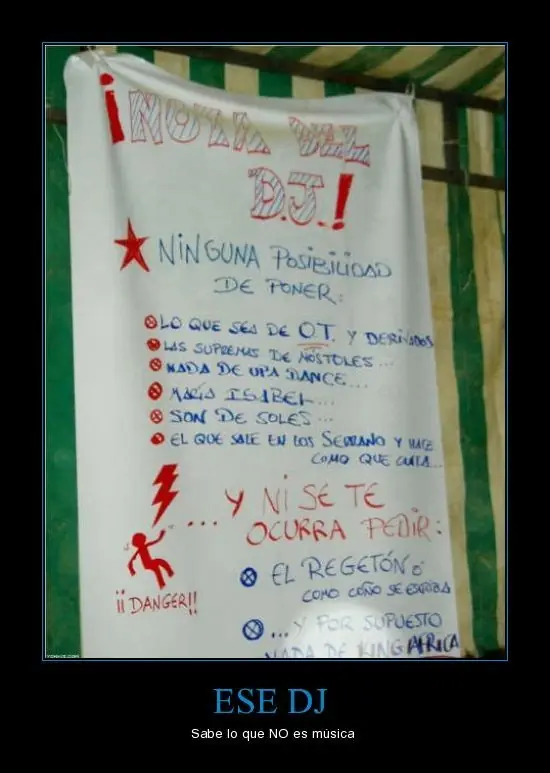 ¡NOTA DEL
D.J.!
NINGUNA POSIBILIDAD
DE PONER:
LO QUE SEA DE O.T. Y DERIVADOS
LAS SUPREMAS DE MÓSTOLES...
NADA DE UPA DANCE...
MARÍA ISABEL...
SON DE SOLES...
EL QUE SALE EN LOS SERRANO Y HACE
COMO QUE CANTA...
...Y NI SE TE
OCURRA PEDIR:
EL REGETÓN Ó
COMO COÑO SE ESCRIBA
¡¡DANGER!!
...Y POR SUPUESTO
NADA DE KING AFRICA
ESE DJ
Sabe lo que NO es música